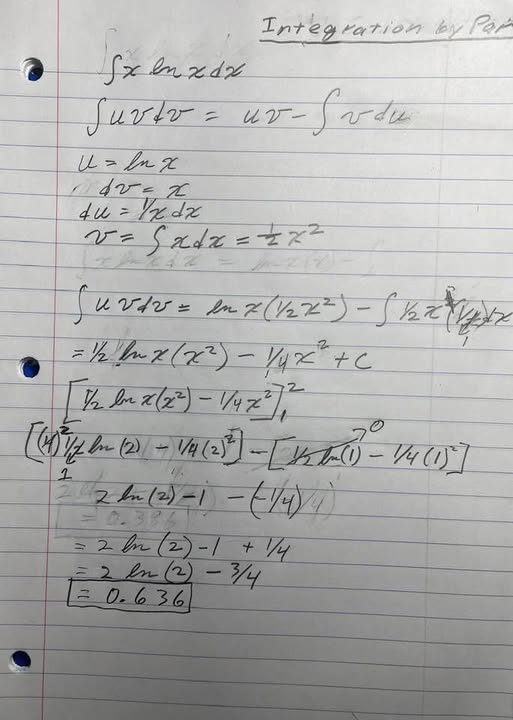 Integration by Par
∫x ln x dx
∫u v dv = uv - ∫ v du
u = ln x
dv = x
du = 1/x dx
v = ∫ x dx = 1/2 x²
∫ u v dv = ln x (1/2 x²) - ∫ 1/2 x² (1/x) dx
= 1/2 ln x (x²) - 1/4 x² + C
[1/2 ln x (x²) - 1/4 x²]₁²
[(4) 1/2 ln(2) - 1/4 (2)²] - [1/2 ln(1) - 1/4 (1)²]
2 ln(2) - 1 - (-1/4)
= 2 ln(2) - 1 + 1/4
= 2 ln(2) - 3/4
= 0.636